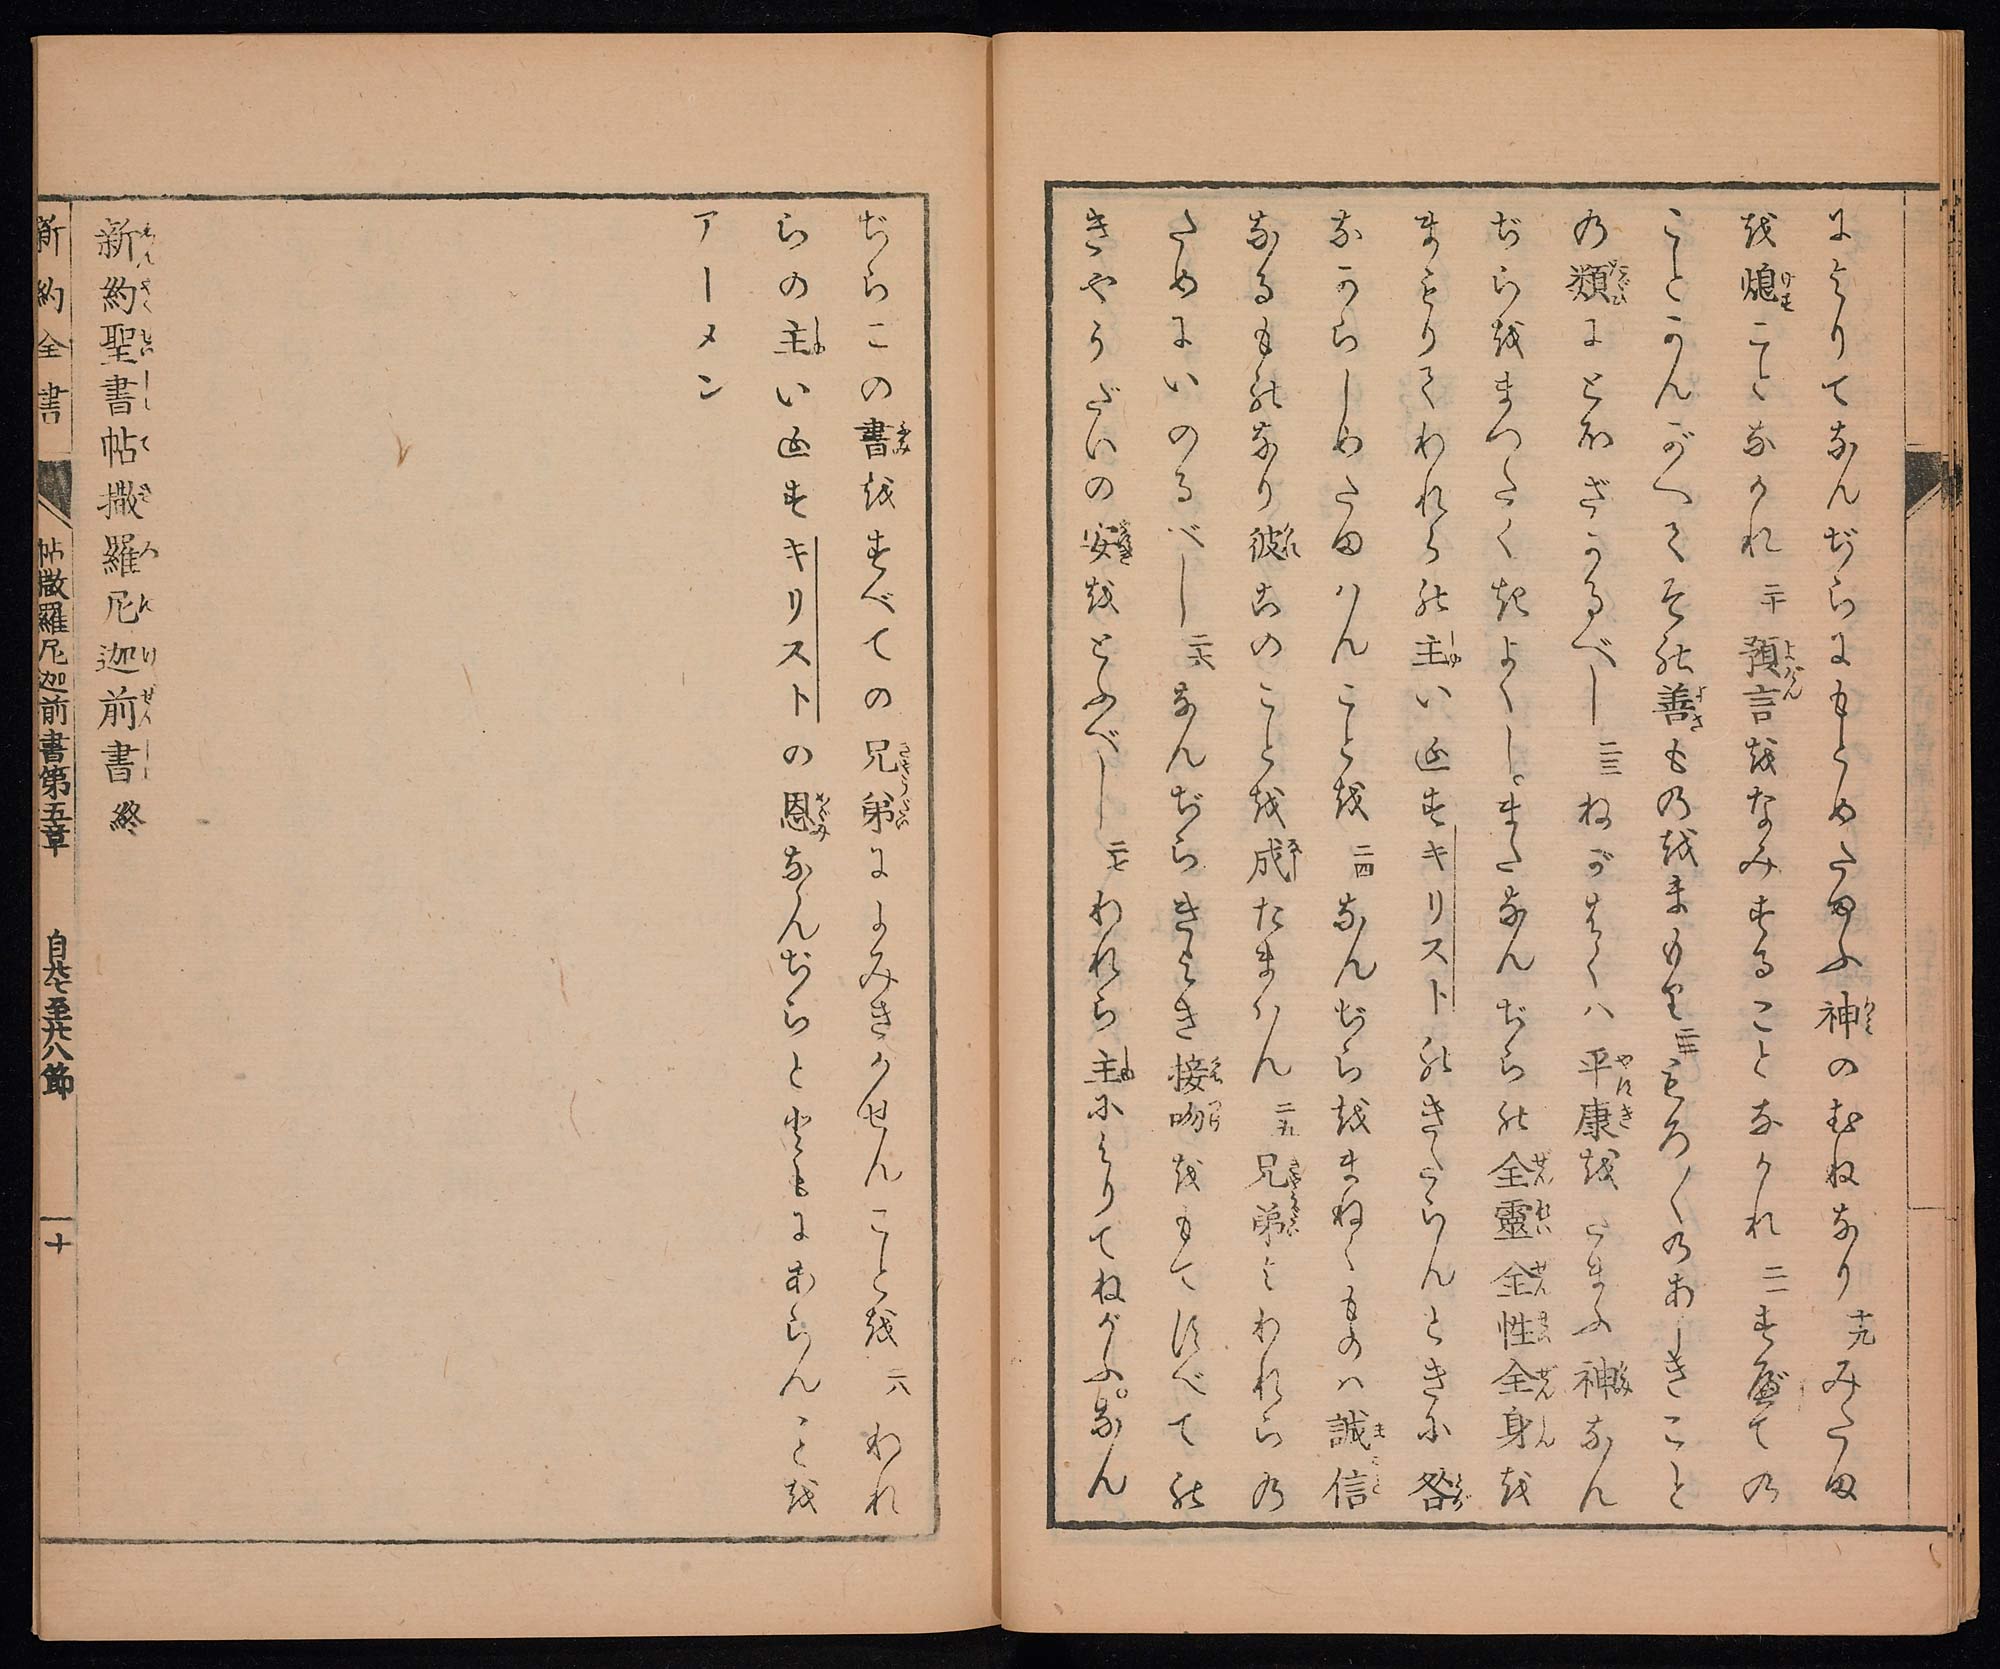 によりてなんぢらにもとめたまふ神のむねなり 十九 みたま
を熄ことなかれ 二十 預言をなみすることなかれ 二一 すべての
ことかんがへてその善ものをまもれ 二二 もろ〱のあしきこと
の類にとほざかるべし 二三 ねがはくハ平康をたまふ神なん
ぢらをまつたく潔よくし。またなんぢらの全靈全性全身を
まもりてわれらの主いゑすキリストのきたらんときに咎
なからしめたまハんことを 二四 なんぢらをまねくものハ誠信
なるものなり彼このことを成たまハん 二五 兄弟よわれらの
ためにいのるべし 二六 なんぢらきよき接吻をもてすべての
きやうだいの安をとふべし 二七 われら主によりてねがふ。なん
ぢらこの書をすべての兄弟によみきかせんことを 二八 われ
らの主いゑすキリストの恩なんぢらとともにあらんことを
アーメン
新約聖書帖撒羅尼迦前書 終
新約全書 帖撒羅尼迦前書第五章 自廿七至廿八節 十